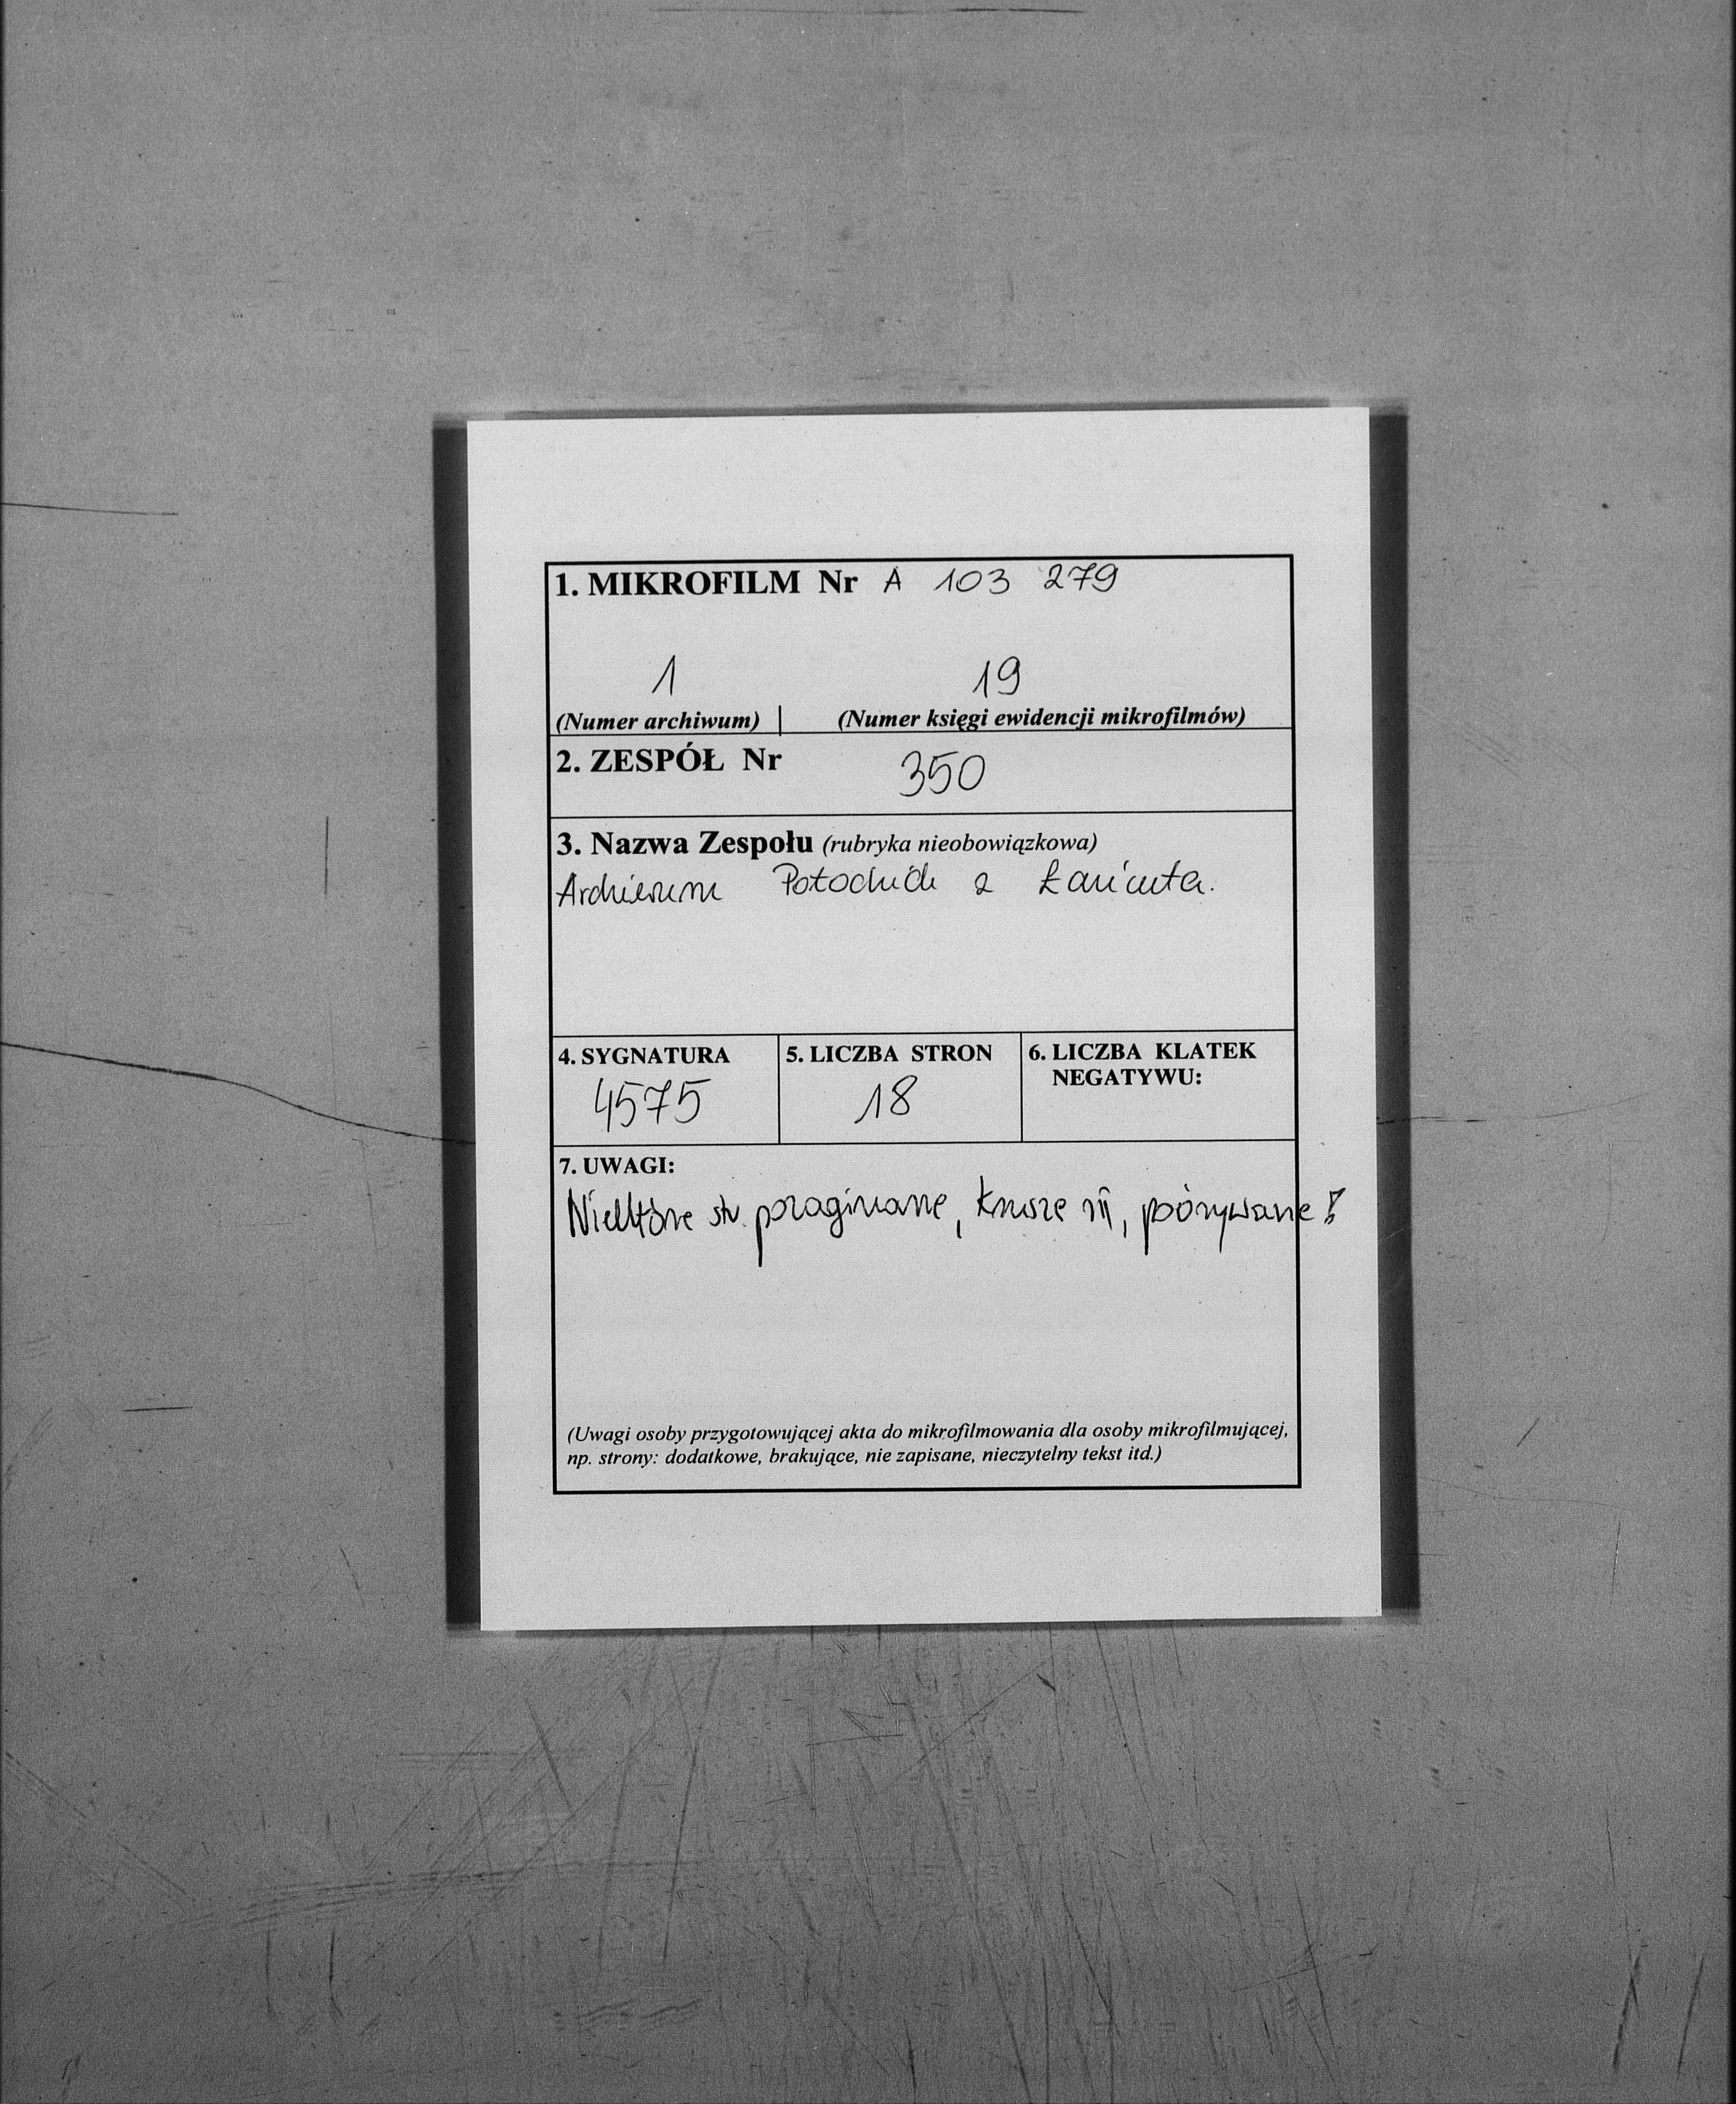 1. MIKROFILM Nr A 103 279
1 19
(Numer archiwum) | (Numer księgi ewidencji mikrofilmów)
2. ZESPÓŁ Nr 350
3. Nazwa Zespołu (rubryka nieobowiązkowa)
Archiwum Potockich z Łańcuta.
4. SYGNATURA 5. LICZBA STRON 6. LICZBA KLATEK
NEGATYWU:
4575 18
7. UWAGI:
Niektóre str. pozaginane, kruszą się, porwane!
(Uwagi osoby przygotowującej akta do mikrofilmowania dla osoby mikrofilmującej,
np. strony: dodatkowe, brakujące, nie zapisane, nieczytelny tekst itd.)